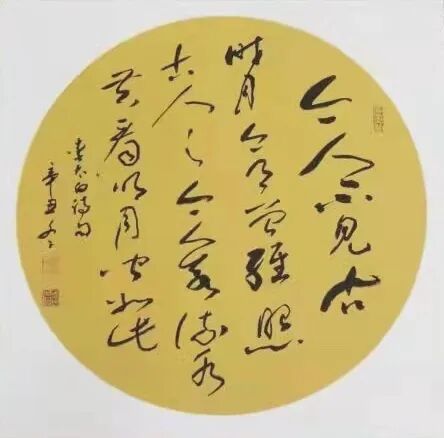 今人不見古
時月今月曾經照
古人〻今人若流水
共看明月皆如此
李太白詩句
辛丑冬